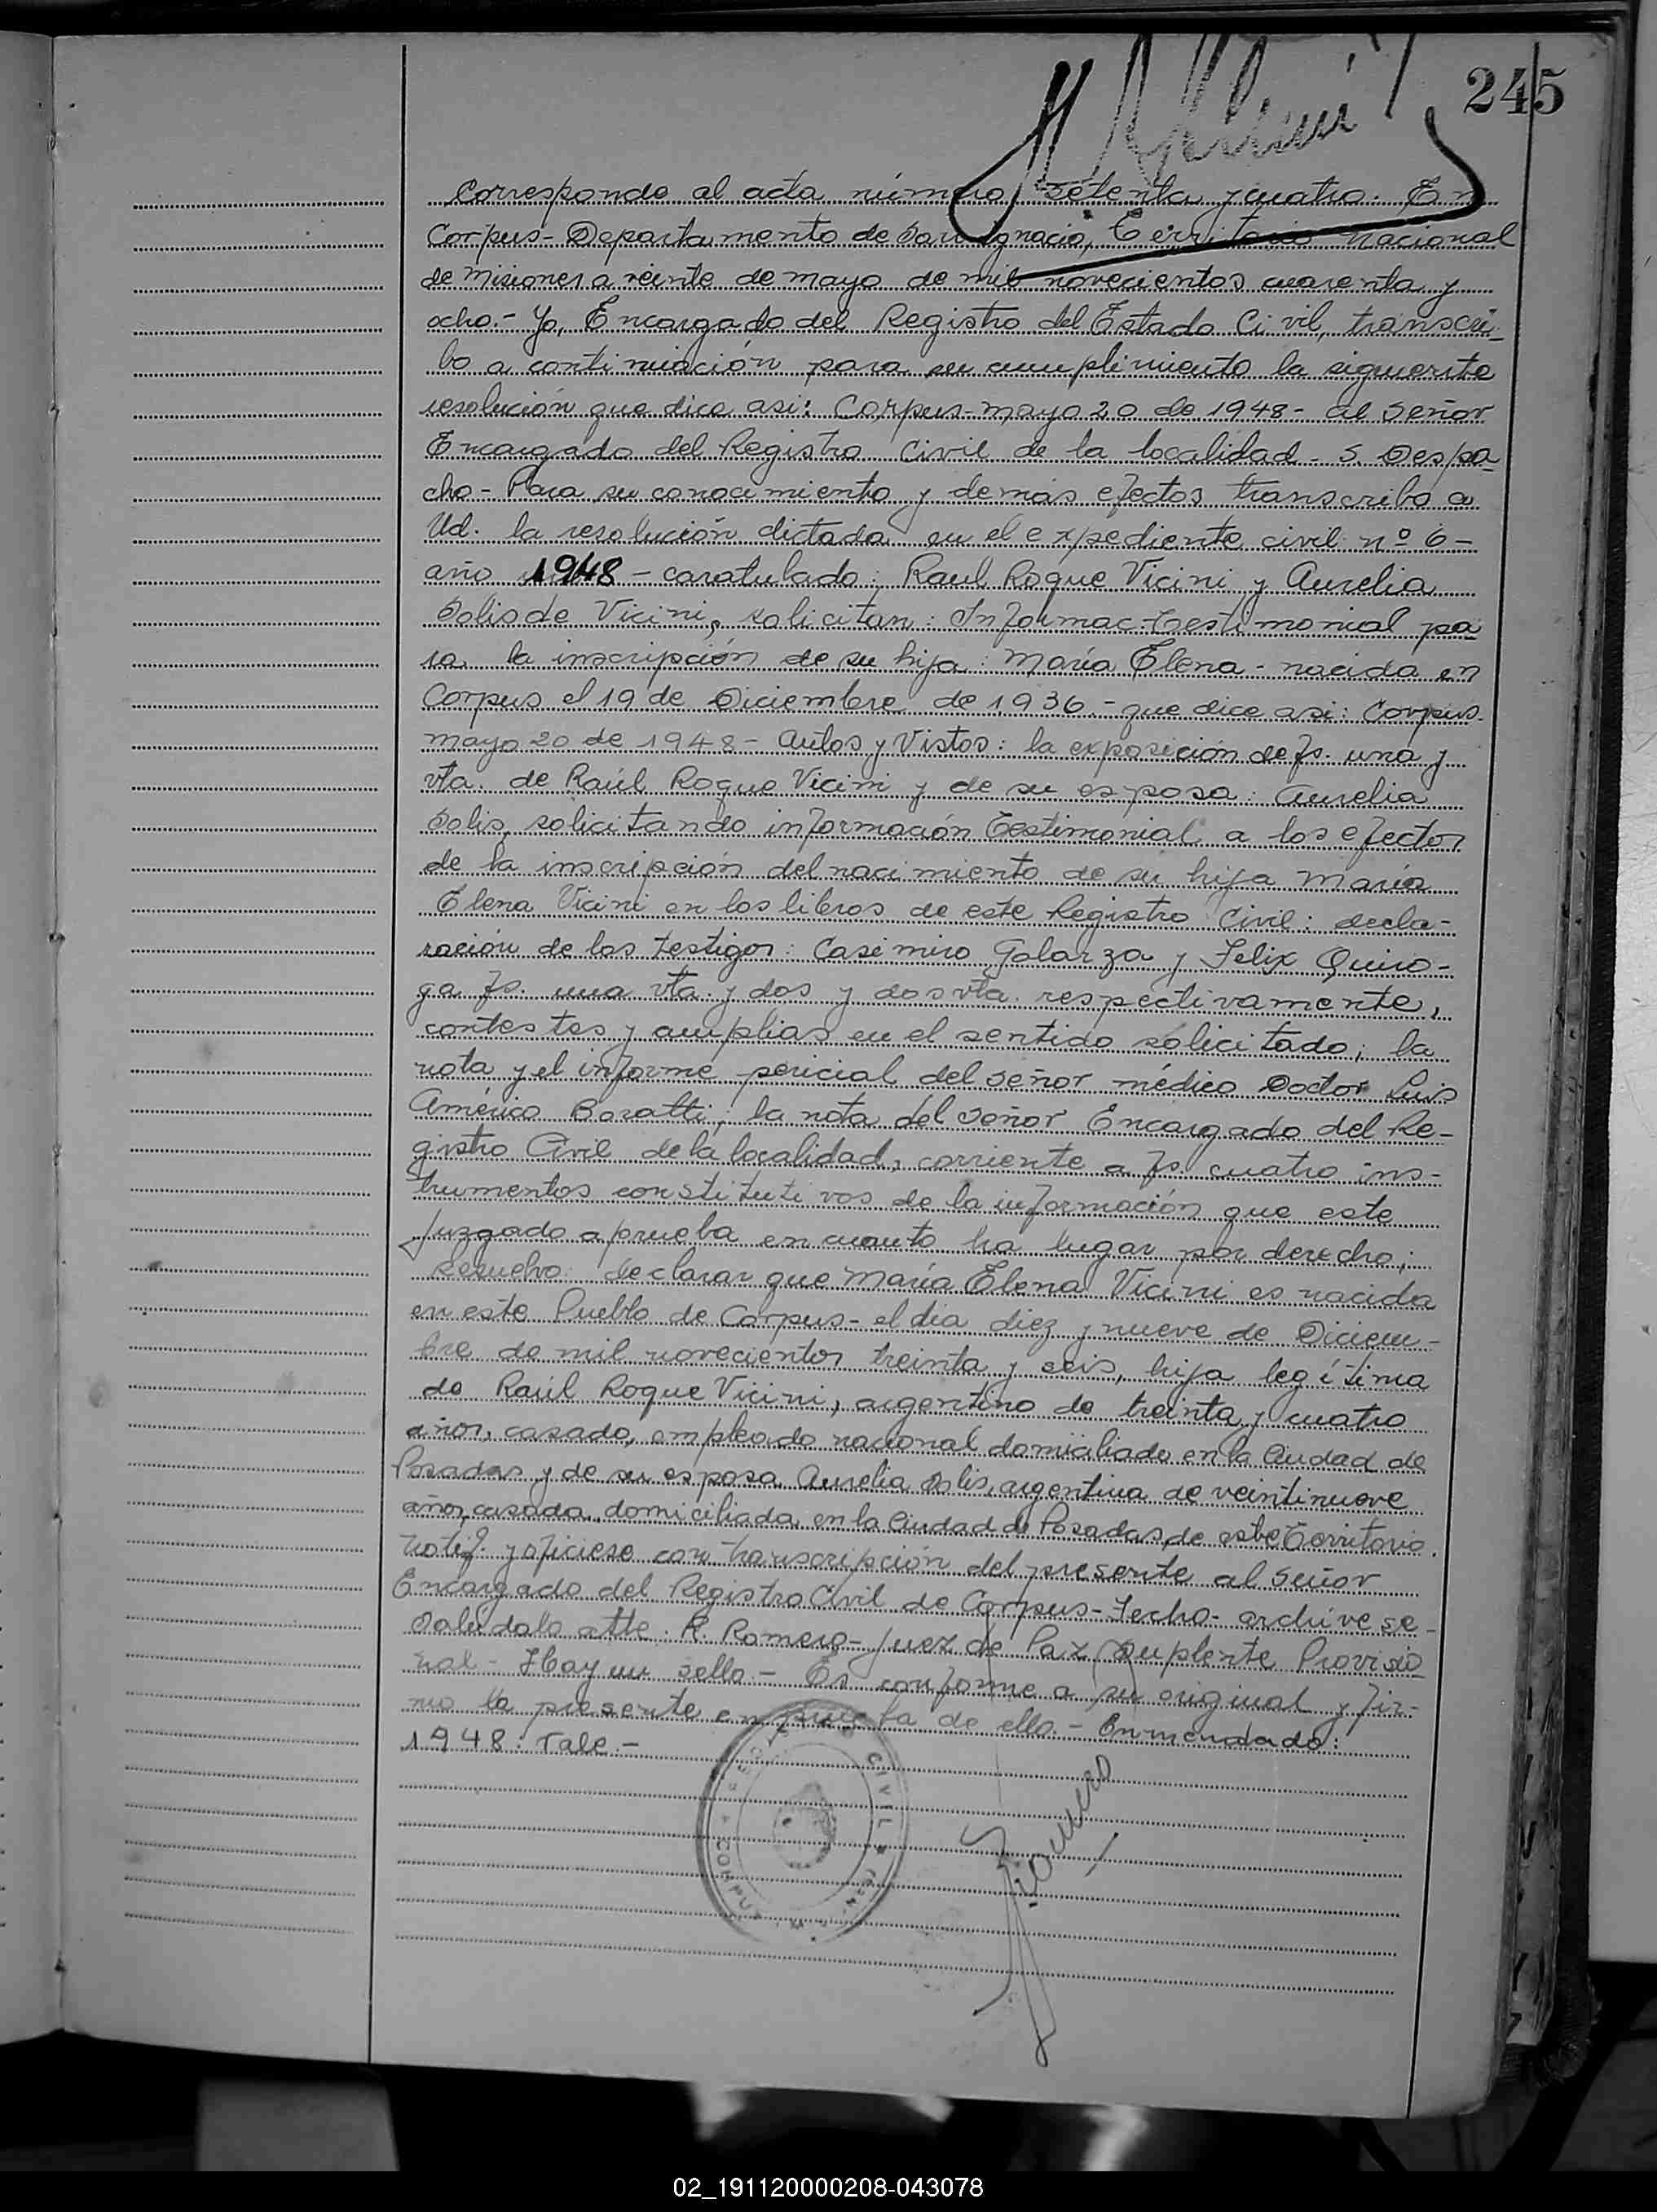 245
Corresponde al acta número setenta y cuatro. En
Corpus- Departamento de San Ignacio, Territorio nacional
de misiones a veinte de mayo de mil novecientos cuarenta y
ocho.- Yo, Encargado del Registro del Estado Civil, transcri-
bo a continuación para su cumplimiento la siguiente
resolución que dice asi: Corpus- mayo 20 de 1948- al señor
Encargado del Registro Civil de la localidad- S. Despa-
cho- Para su conocimiento y demás efectos transcribo a
Ud. la resolución dictada en el expediente civil nº 6-
año 1948 - caratulado: Raul Roque Vicini y Aurelia
Solis de Vicini, solicitan: Informac. Testimonial pa
ra la inscripción de su hija: María Elena - nacida en
Corpus el 19 de Diciembre de 1936.- que dice asi: Corpus-
mayo 20 de 1948 - Autos y Vistos: la exposición de fs. una y
vta. de Raúl Roque Vicini y de su esposa: Aurelia
Solis, solicitando información Testimonial a los efectos
de la inscripción del nacimiento de su hija María
Elena Vicini en los libros de este Registro Civil: decla-
ración de los testigos: Casimiro Galarza y Felix Quiro-
ga fs. una vta. y dos y dos vta. respectivamente,
contestes y amplias en el sentido solicitado; la
nota y el informe pericial del señor médico Doctor Luis
Américo Baratti; la nota del señor Encargado del Re-
gistro Civil de la localidad, corriente a fs. cuatro ins-
trumentos constitutivos de la información que este
Juzgado aprueba en cuanto ha lugar por derecho;
Resuelvo: declarar que María Elena Vicini es nacida
en este Pueblo de Corpus- el dia diez y nueve de Diciem-
bre de mil novecientos treinta y seis, hija legítima
de Raúl Roque Vicini, argentino de treinta y cuatro
años, casado, empleado nacional domiciliado en la Ciudad de
Posadas y de su esposa Aurelia Solis, argentina de veintinueve
años, casada, domiciliada en la Ciudad de Posadas, de este Territorio.
Notif. y oficiese con transcripción del presente al señor
Encargado del Registro Civil de Corpus- Fecho- archivese-
Salúdalo atte. R. Romero- Juez de Paz Suplente Provisio
nal- Hay un sello.- Es conforme a su original y fir-
mo la presente en prueba de ello.- Enmendado:
1948: Vale.-
CIVIL
CORPUS
Romero
02_191120000208-043078